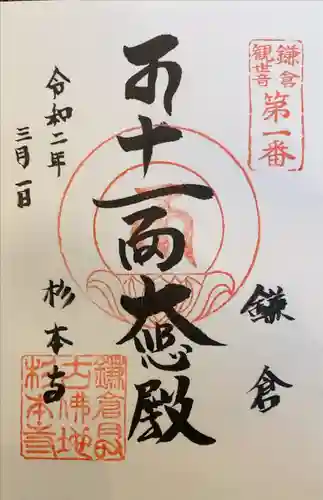 鎌倉
観世音
第一番
鎌倉
十一面大悲殿
令和二年
三月一日
杉本寺
鎌倉最
古佛地
杉本寺